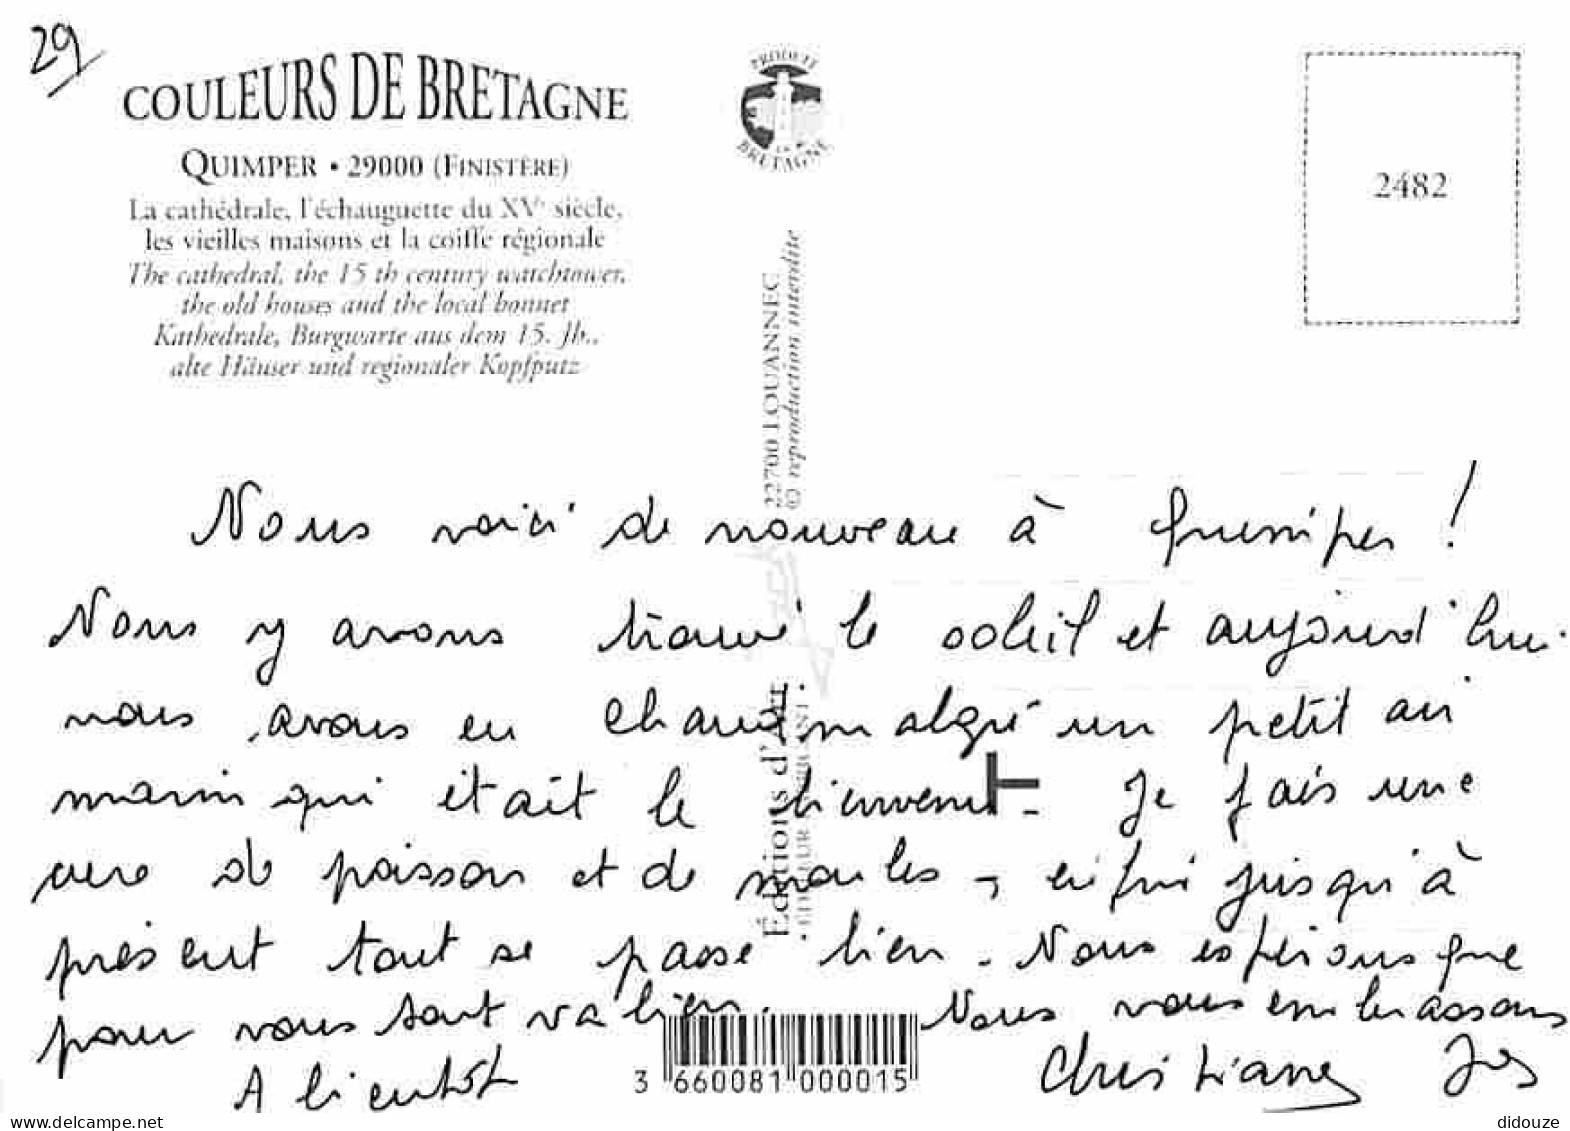 29
COULEURS DE BRETAGNE
QUIMPER • 29000 (FINISTÈRE)
La cathédrale, l'échauguette du XVe siècle,
les vieilles maisons et la coiffe régionale
The cathedral, the 15 th century watchtower,
the old houses and the local bonnet
Kathedrale, Burgwarte aus dem 15. Jh.,
alte Häuser und regionaler Kopfputz
PRODUIT
EN
BRETAGNE
2482
Éditions d'Art
22700 LOUANNEC
© reproduction interdite
Nous voici de nouveau à Quimper !
Nous y avons trouvé le soleil et aujourd'hui
nous avons eu chaud malgré un petit air
marin qui était le bienvenu. Je fais une
cure de poisson et de moules - enfin jusqu'à
présent tout se passe bien. Nous espérons que
pour vous tout va bien. Nous vous embrassons
A bientôt Christiane
3 660081 000015
didouze